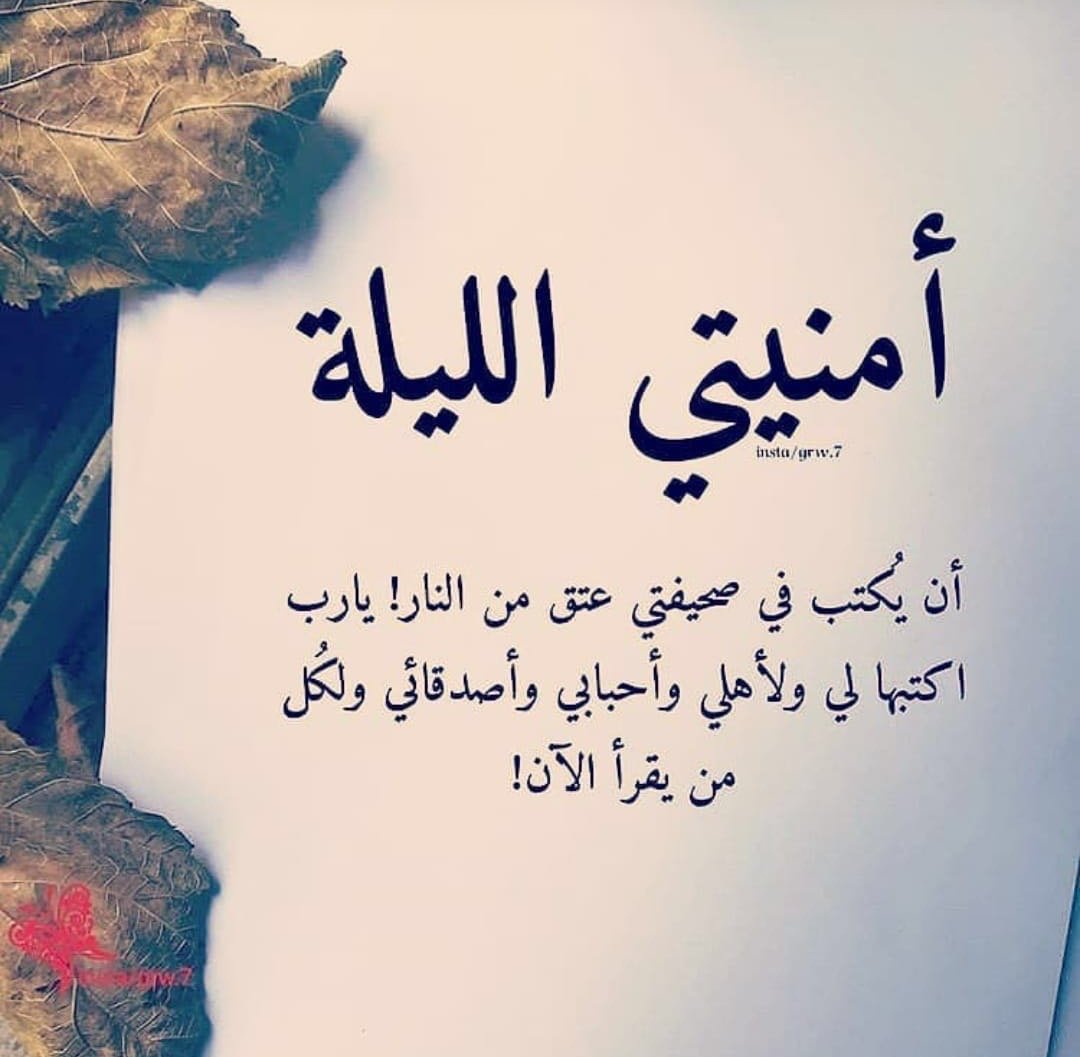 أمنيتي الليلة
insta/grw.7
أن يُكتب في صحيفتي عتق من النار! يارب
اكتبها لي ولأهلي وأحبابي وأصدقائي ولكُل
من يقرأ الآن!
insta/grw.7